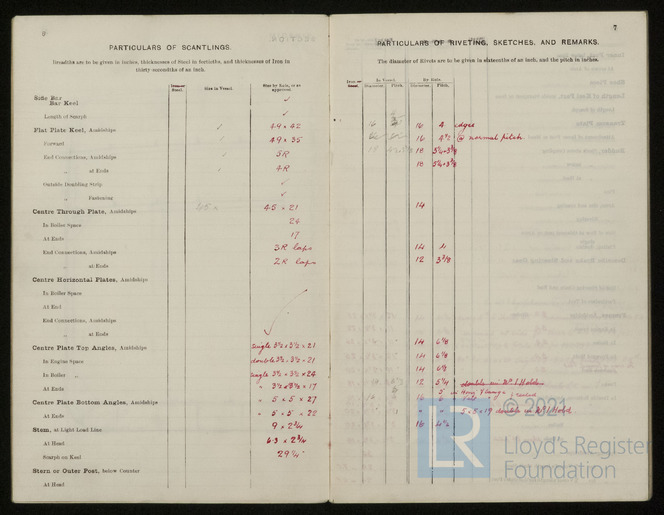 9
PARTICULARS OF SCANTLINGS.
Breadths are to be given in inches, thicknesses of Steel in fortieths, and thicknesses of Iron in
thirty-seconds of an inch.
Iron or Steel.
Size in Vessel.
Size by Rule, or as approved.
Side Bar
Bar Keel
Length of Scarph
Flat Plate Keel, Amidships 49 × 42
Forward 49 × 35
End Connections, Amidships 5R
„ at Ends 4R
Outside Doubling Strip
„ Fastening
Centre Through Plate, Amidships 45 × 45 × 21
In Boiler Space 24
At Ends 17
End Connections, Amidships 3R laps
„ at Ends 2R laps
Centre Horizontal Plates, Amidships
In Boiler Space
At End
End Connections, Amidships
„ at Ends
Centre Plate Top Angles, Amidships angle 3½ × 3½ × 21
In Engine Space double 3½ × 3½ × 21
In Boiler „ angle 3½ × 3½ × 24
At Ends „ 3½ × 3½ × 17
Centre Plate Bottom Angles, Amidships „ 5 × 5 × 27
At Ends „ 5 × 5 × 22
Stem, at Light Load Line 9 × 2¾
At Head 6·3 × 2¾
Scarph on Keel 29¼"
Stern or Outer Post, below Counter
At Head
7
PARTICULARS OF RIVETING, SKETCHES, AND REMARKS.
The diameter of Rivets are to be given in sixteenths of an inch, and the pitch in inches.
Iron or Steel.
In Vessel.
By Rule.
Diameter.
Pitch.
Diameter.
Pitch.
16 4 edges
16 4½ @ normal pitch
18
18
14
14 4
12 3⅜
14 6⅛
14 6⅛
14 6⅛
12 5¼ double in No 1 Hold
5
14 6
„ „ 5 × 5 × 19 double in No 1 Hold
16 4½
© 2021
LR
Lloyd's Register
Foundation